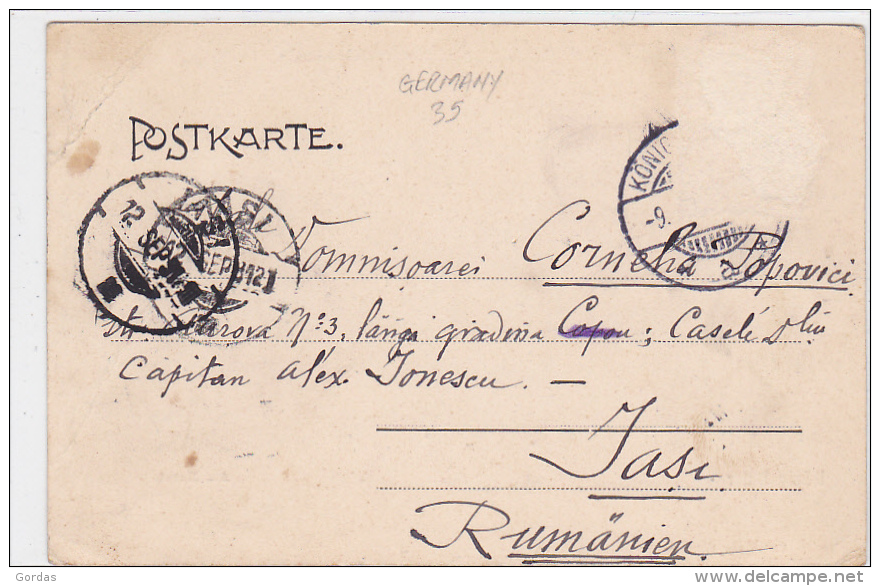 GERMANY
35
POSTKARTE.
KÖNIG
-9.
12 SEP
Domnișoarei Cornelia Popovici
str. Aurora No 3, lângă gradina Copou; Casele Dlui
Capitan Alex. Ionescu. —
Iași
Rumänien.
Gordas
delcampe.net